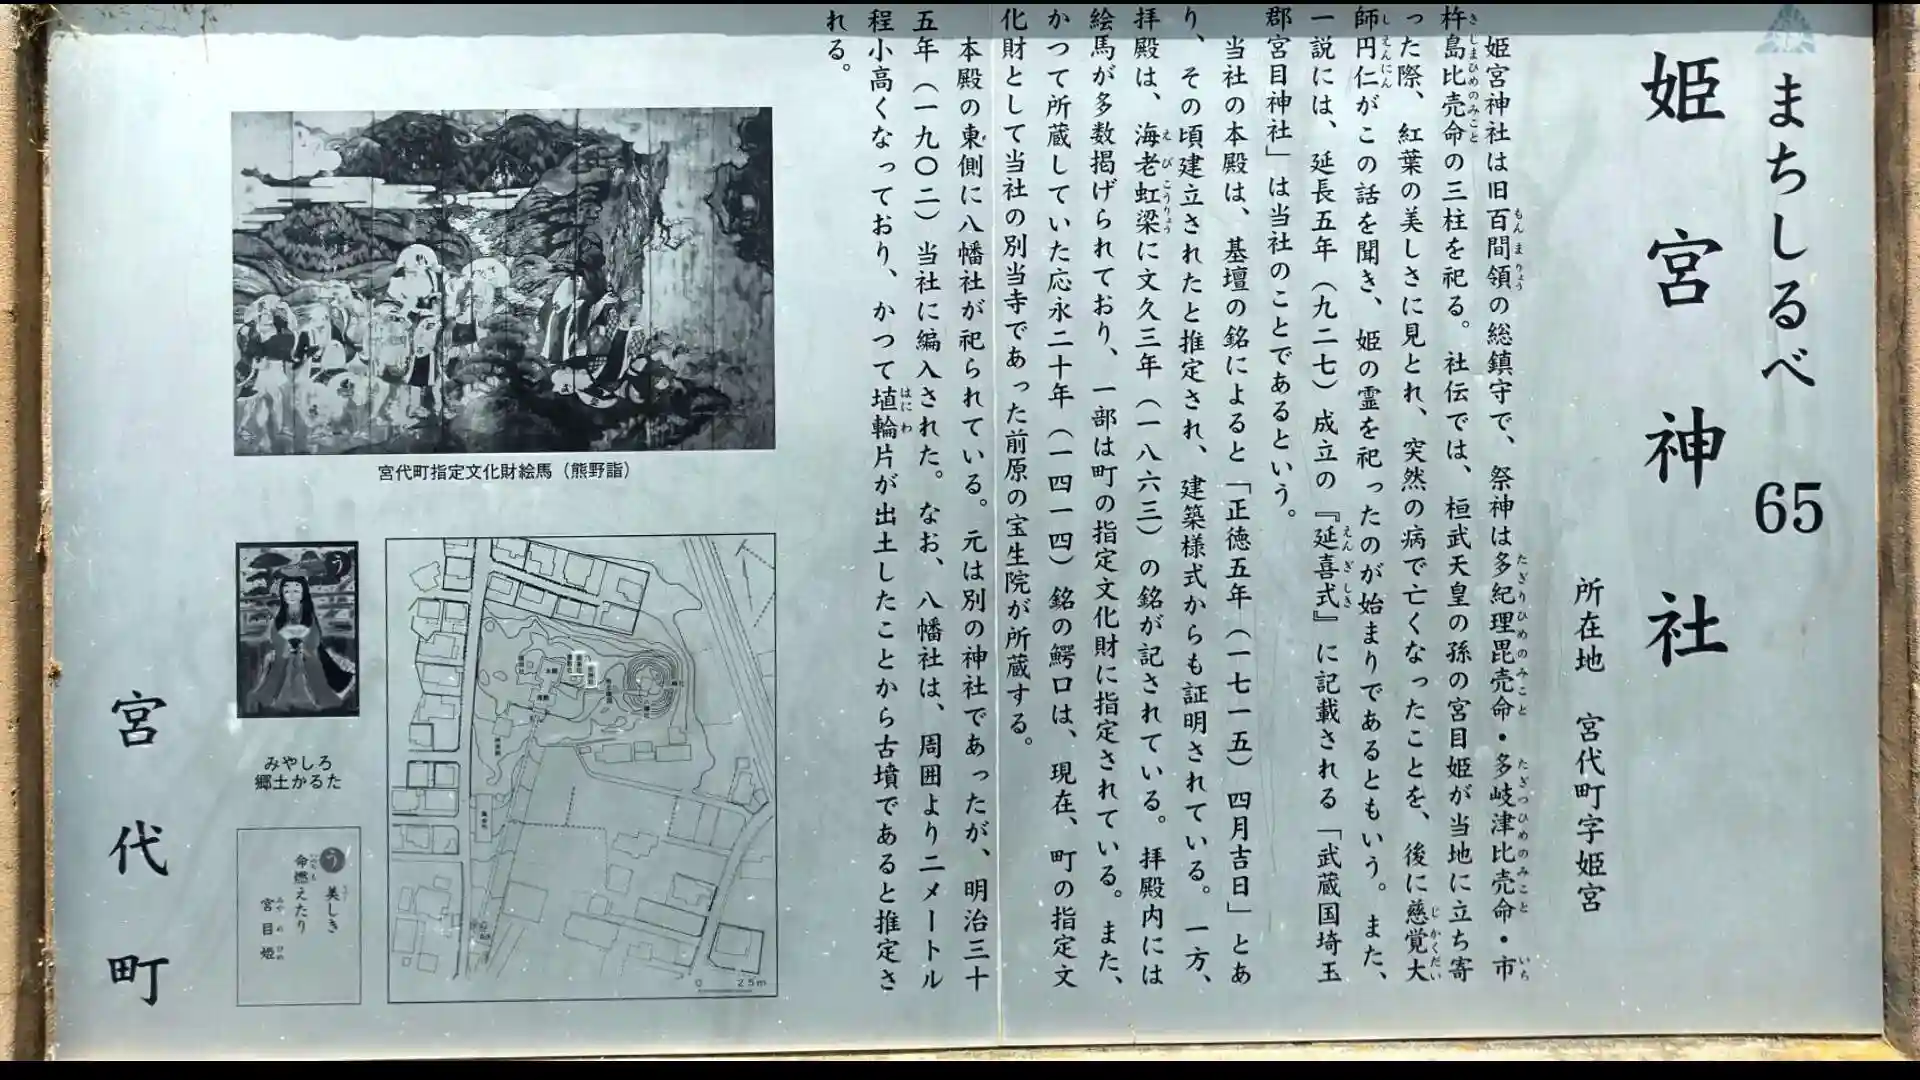 まちしるべ 65
姫宮神社
所在地 宮代町字姫宮
姫宮神社は旧百間領の総鎮守で、祭神は多紀理毘売命・多岐津比売命・市
杵島比売命の三柱を祀る。社伝では、桓武天皇の孫の宮目姫が当地に立ち寄
った際、紅葉の美しさに見とれ、突然の病で亡くなったことを、後に慈覚大
師円仁がこの話を聞き、姫の霊を祀ったのが始まりであるともいう。また、
一説には、延長五年（九二七）成立の『延喜式』に記載される「武蔵国埼玉
郡宮目神社」は当社のことであるという。
当社の本殿は、基壇の銘によると「正徳五年（一七一五）四月吉日」とあ
り、その頃建立されたと推定され、建築様式からも証明されている。一方、
拝殿は、海老虹梁に文久三年（一八六三）の銘が記されている。拝殿内には
絵馬が多数掲げられており、一部は町の指定文化財に指定されている。また、
かつて所蔵していた応永二十年（一四一四）銘の鰐口は、現在、町の指定文
化財として当社の別当寺であった前原の宝生院が所蔵する。
本殿の東側に八幡社が祀られている。元は別の神社であったが、明治三十
五年（一九〇二）当社に編入された。なお、八幡社は、周囲より二メートル
程小高くなっており、かつて埴輪片が出土したことから古墳であると推定さ
れる。
宮代町指定文化財絵馬（熊野詣）
う
みやしろ
郷土かるた
う 美しき
命燃えたり
宮目姫
0 25m
宮代町